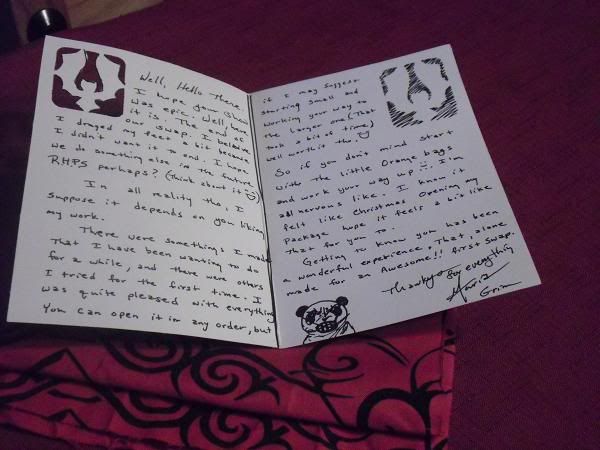 Well, Hello There
I hope your show
was epic. Well, here
it is. The end of
our swap. I believe
I drayed my feet a bit because
I didn't want it to end. I hope
we do something else in the future
RHPS perhaps? (Think about it)
In all reality tho, I
suppose it depends on you liking
my work.
There were somethings I made
That I have been wanting to do
for a while, and there were others
I tried for the first time. I
was quite pleased with everything
You can open it in any order, but
if I may suggest
starting small and
working your way to
the larger one (That
took a bit of time)
well worth it tho.
So if you don't mind start
with the little Orange bags
and work your way up. I'm
all nervous like. I know it
felt like Christmas Opening my
Package hope it feels a bit like
that for you to.
Getting to know you has been
a wonderful experience. That, alone
made for an Awesome!! first swap.
Thankyou for everything
Grim